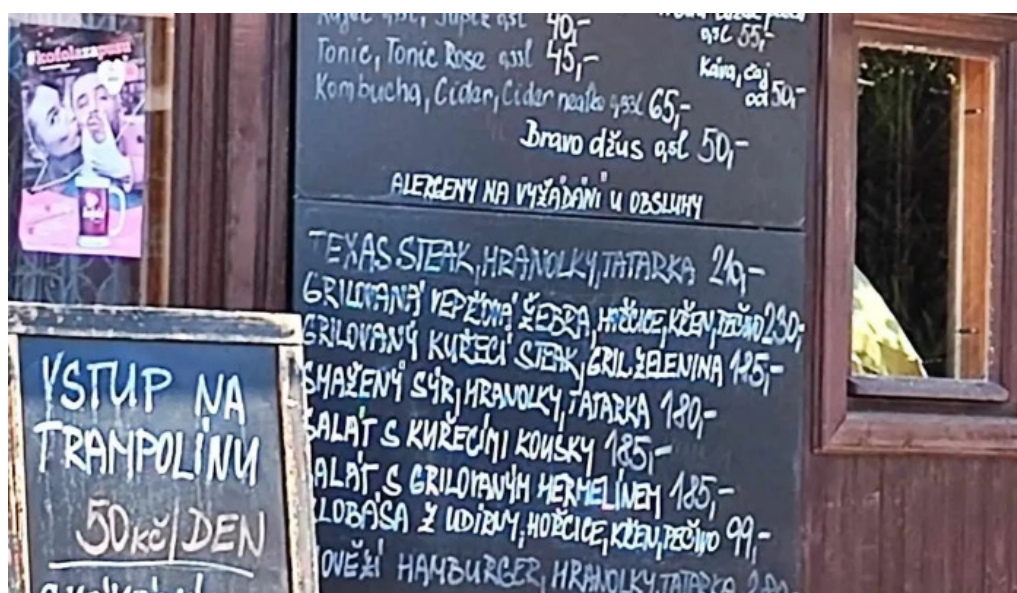 #kofolazapusu
0,5l, Jupík 0,5l 40,-
Tonic, Tonic Rose 0,33l 45,-
Kombucha, Cider, Cider nealko 0,33l 65,-
Bravo džus 0,5l 50,-
0,5l 55,-
Káva, čaj
od 50,-
ALERGENY NA VYŽÁDÁNÍ U OBSLUHY
TEXAS STEAK, HRANOLKY, TATARKA 210,-
GRILOVANÁ VEPŘOVÁ ŽEBRA, HOŘČICE, KŘEN, PEČIVO 230,-
GRILOVANÝ KUŘECÍ STEAK, GRIL.ZELENINA 185,-
SMAŽENÝ SÝR, HRANOLKY, TATARKA 180,-
SALÁT S KUŘECÍMI KOUSKY 185,-
SALÁT S GRILOVANÝM HERMELÍNEM 185,-
KLOBÁSA Z UDÍRNY, HOŘČICE, KŘEN, PEČIVO 99,-
HOVĚZÍ HAMBURGER, HRANOLKY, TATARKA
VSTUP NA
TRAMPOLÍNU
50Kč/DEN